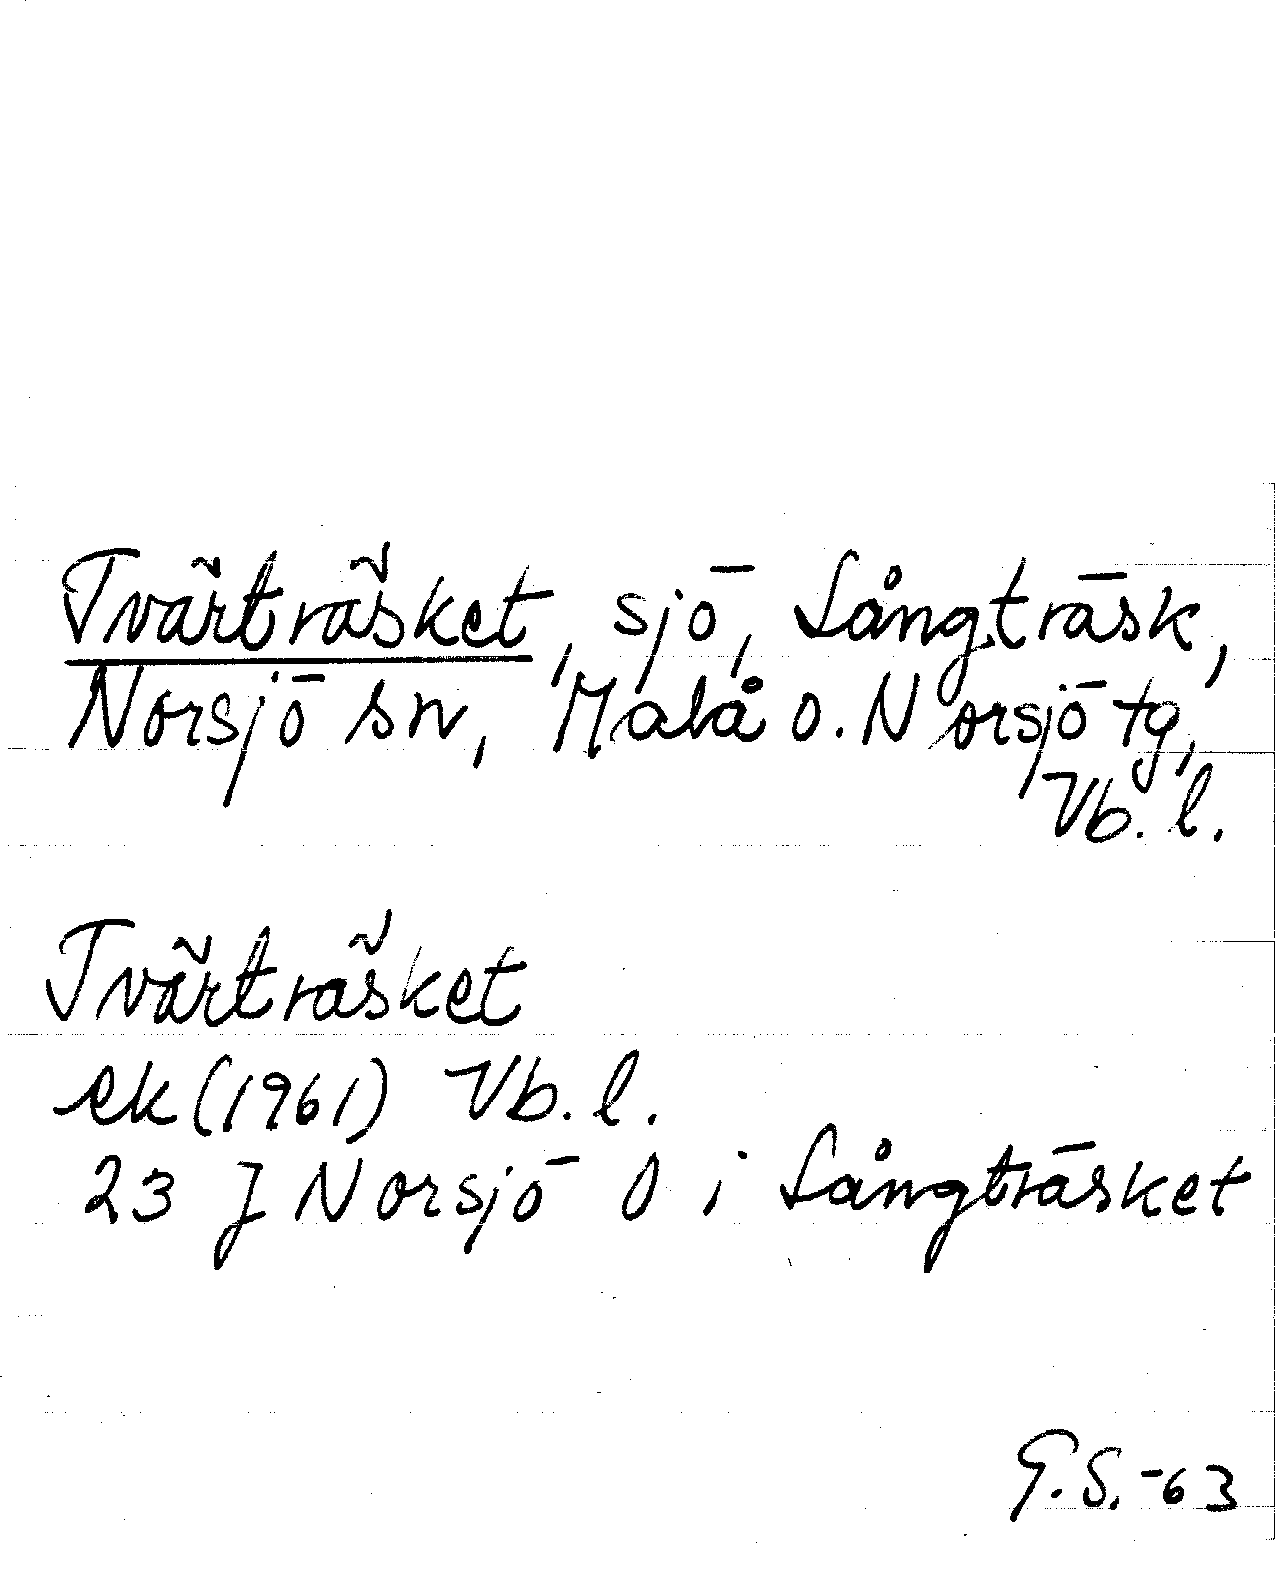 Tvärträsket, sjö, Långträsk,
Norsjö sn, Malå o. Norsjö tg,
Vb. l.
Tvärträsket
ek (1961) Vb. l.
23 J Norsjö O i Långträsket
G.S. -63